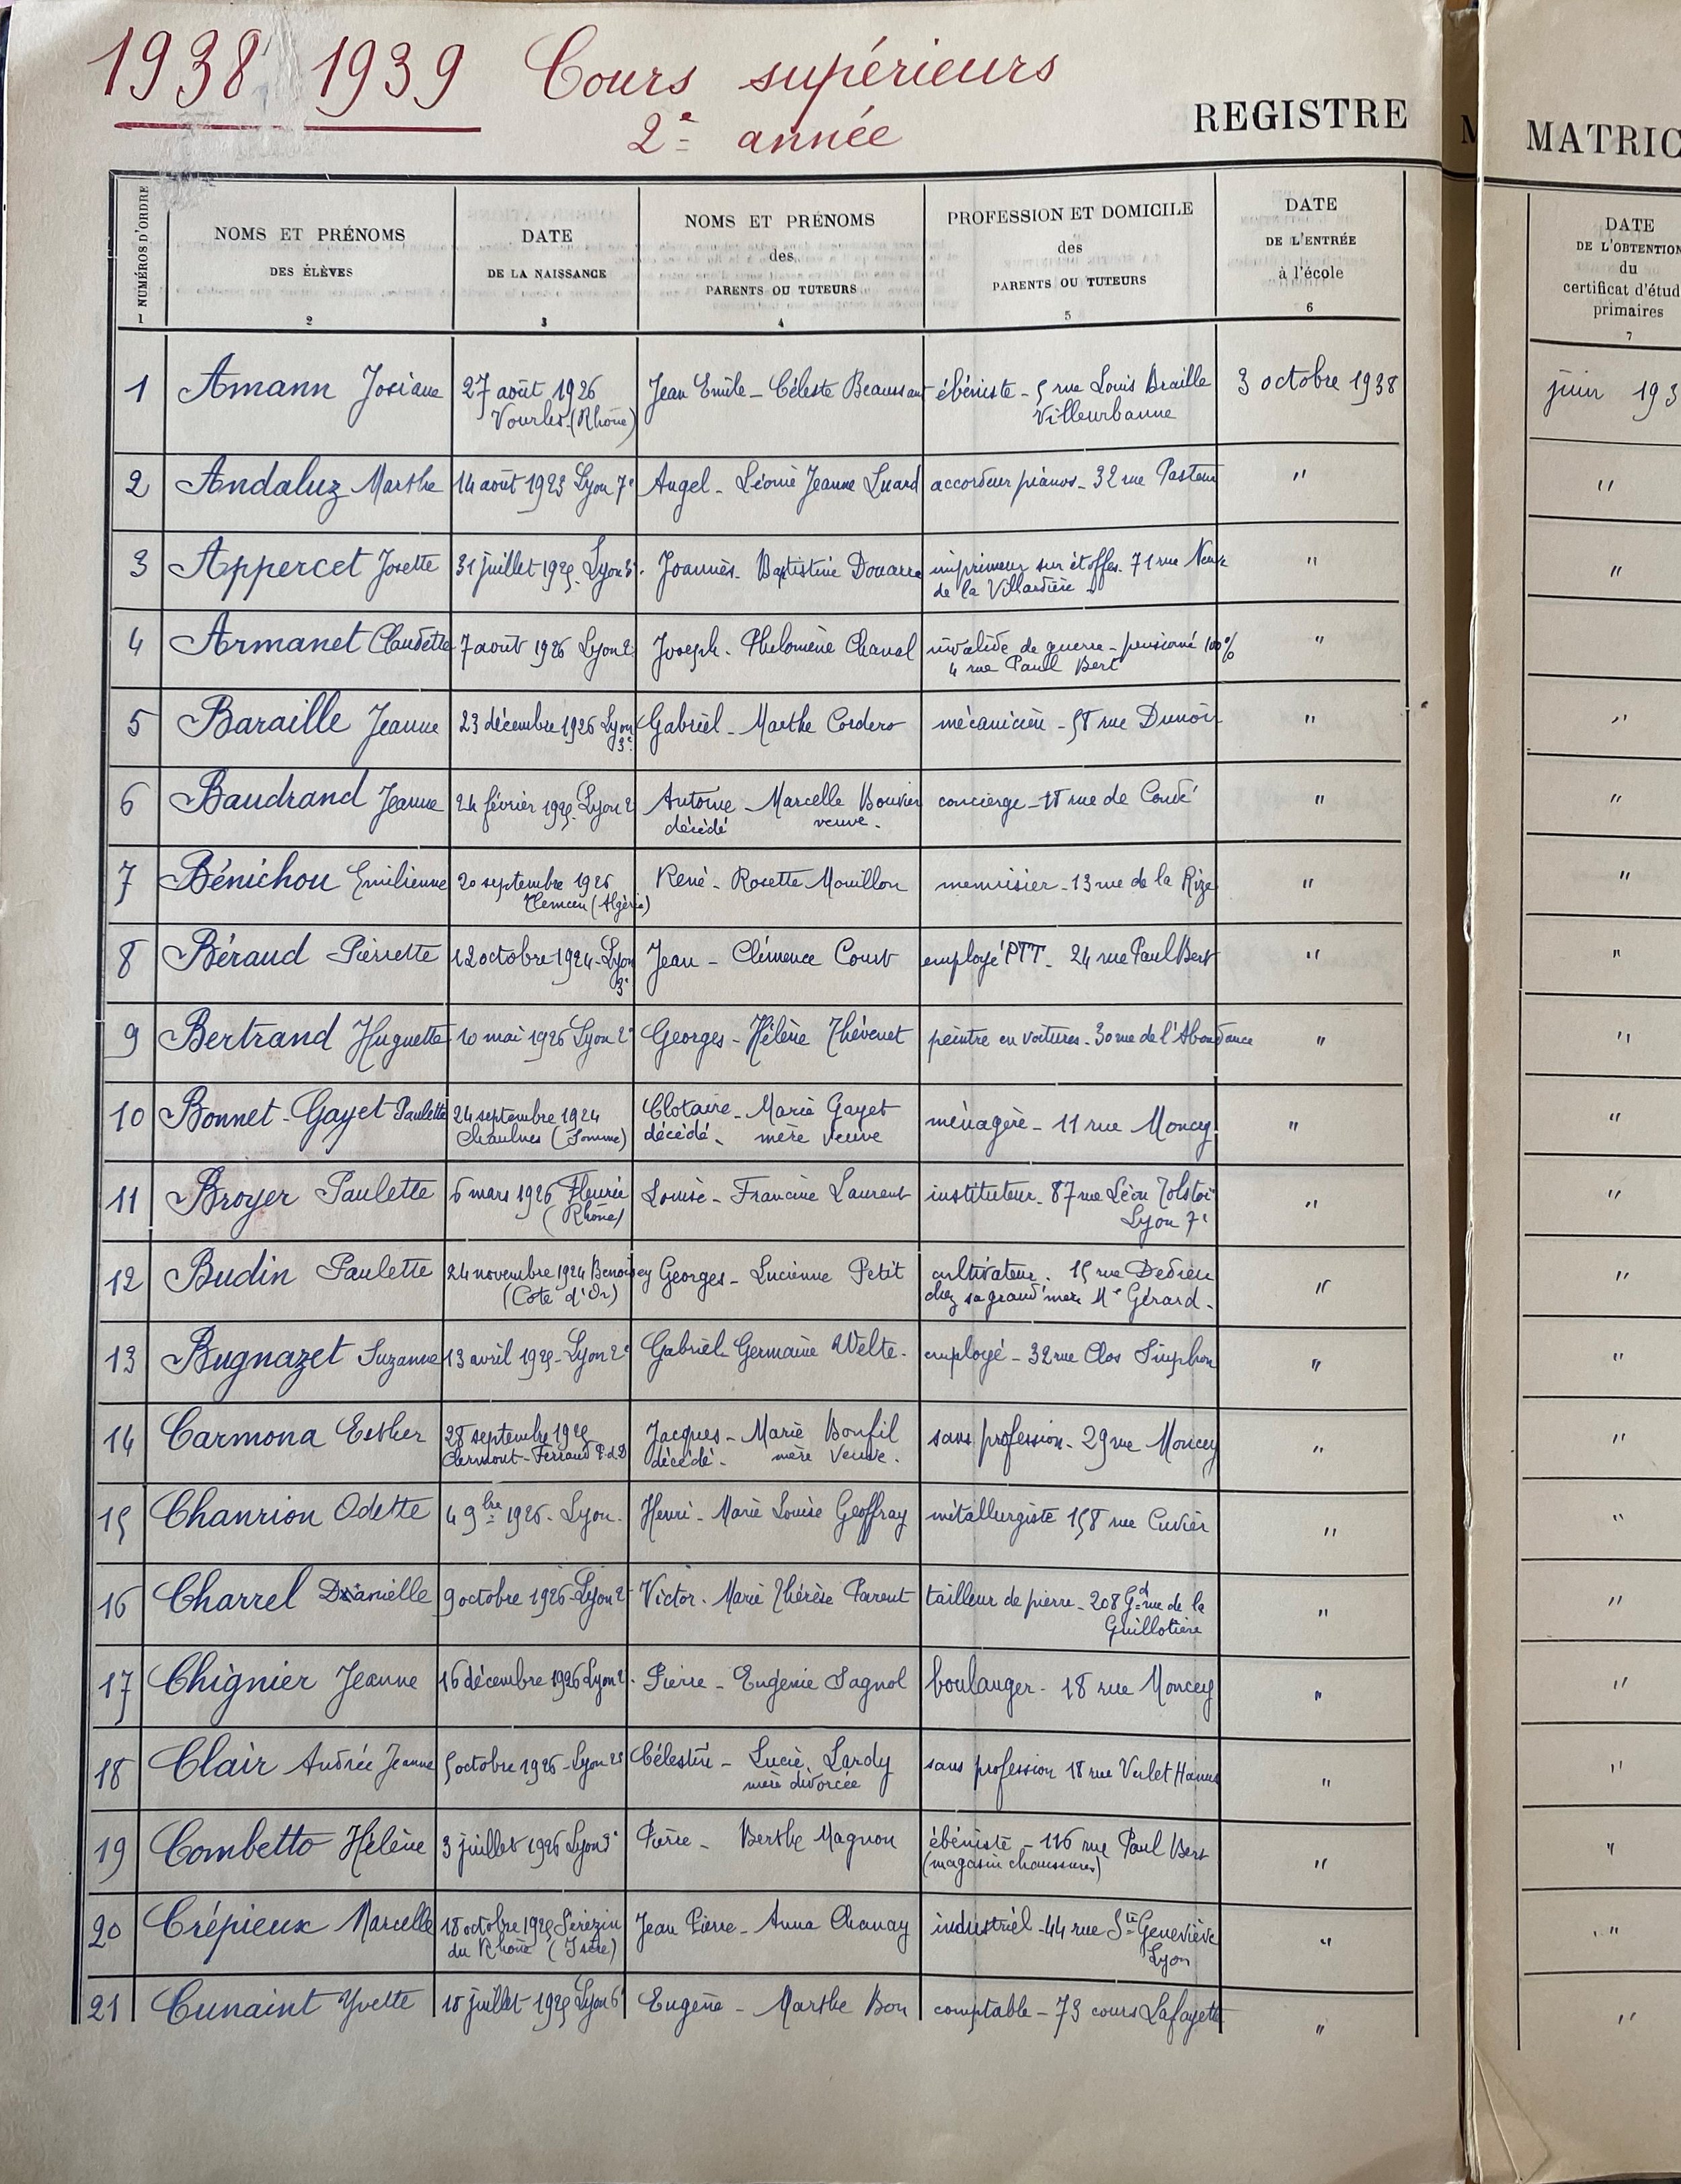 1938 1939 Cours supérieurs
2e année
REGISTRE
MATRIC
NUMÉROS D'ORDRE
1
NOMS ET PRÉNOMS
DES ÉLÈVES
2
DATE
DE LA NAISSANCE
3
NOMS ET PRÉNOMS
des
PARENTS OU TUTEURS
4
PROFESSION ET DOMICILE
des
PARENTS OU TUTEURS
5
DATE
DE L'ENTRÉE
à l'école
6
DATE
DE L'OBTENTION
du
certificat d'étud
primaires
7
1 Amann Josiane 27 août 1926 Jean Emile - Céleste Beaussant ébéniste - 5 rue Louis Braille 3 octobre 1938 juin 193
Vourles (Rhône) Villeurbanne
2 Andaluz Marthe 14 août 1923 Lyon 7e Angel - Léonie Jeanne Luard accordeur pianos - 32 rue Pasteur " "
3 Appercet Josette 31 juillet 1925. Lyon 3e. Joannès - Baptistine Douarre imprimeur sur étoffes. 71 rue Neuve " "
de la Villardière
4 Armanet Claudette 7 août 1926 Lyon 2 Joseph - Philomène Chaval invalide de guerre - pensionné 100% " "
4 rue Paul Bert
5 Baraille Jeanne 23 décembre 1926 Lyon Gabriel - Marthe Cordero mécanicien - 58 rue Dunoir " "
3e
6 Baudrand Jeanne 24 février 1925. Lyon 2 Antoine - Marcelle Bouvier concierge - 18 rue de Condé " "
décédé veuve.
7 Bénichou Emilienne 20 septembre 1926 René - Rosette Mouillon menuisier - 13 rue de la Rize " "
Tlemcen (Algérie)
8 Béraud Pierrette 12 octobre 1924 - Lyon Jean - Clémence Court employé PTT - 24 rue Paul Bert " "
3e
9 Bertrand Huguette 10 mai 1926 Lyon 2e Georges - Hélène Thévenet peintre en voitures - 30 rue de l'Abondance " "
10 Bonnet-Gayet Paulette 24 septembre 1924 Clotaire - Marie Gayet ménagère - 11 rue Moncey " "
Chaulnes (Somme) décédé - mère veuve
11 Broyer Paulette 6 mars 1926 Fleurie Louise - Francine Laurent instituteur - 87 rue Léon Tolstoï " "
(Rhône) Lyon 7e
12 Budin Paulette 24 novembre 1924 Benoisey Georges - Lucienne Petit cultivateur. 15 rue Dedieu " "
(Côte d'Or) chez sa grand'mère Me Gérard -
13 Bugnazet Suzanne 13 avril 1925 - Lyon 2e Gabriel - Germaine Welte - employé - 32 rue Clos Suiphon " "
14 Carmona Esther 28 septembre 1925 Jacques - Marie Bonfil sans profession - 29 rue Moncey " "
Clermont-Ferrand P.d.D décédé - mère veuve.
15 Chanrion Odette 4 9bre 1926 - Lyon - Henri - Marie Louise Geoffray métallurgiste 158 rue Cuvier " "
16 Charrel Danielle 9 octobre 1926 - Lyon 2 Victor - Marie Thérèse Parent tailleur de pierre - 208 Gde rue de la " "
Guillotière
17 Chignier Jeanne 16 décembre 1926 Lyon 2. Pierre - Eugénie Sagnol boulanger - 18 rue Moncey " "
18 Clair Andrée Jeanne 5 octobre 1926 - Lyon 2e Célestin - Lucie Lardy sans profession 18 rue Verlet Hanus " "
mère divorcée
19 Combetto Hélène 3 juillet 1926 Lyon 3e Pierre - Berthe Magnon ébéniste - 116 rue Paul Bert " "
(magasin chaussures)
20 Crépieux Marcelle 18 octobre 1925 Sérézin Jean Pierre - Anna Chanay industriel - 44 rue Ste Geneviève " "
du Rhône (Isère) Lyon
21 Cunaint Yvette 18 juillet 1925 Lyon 6 Eugène - Marthe Bon comptable - 73 cours Lafayette " "